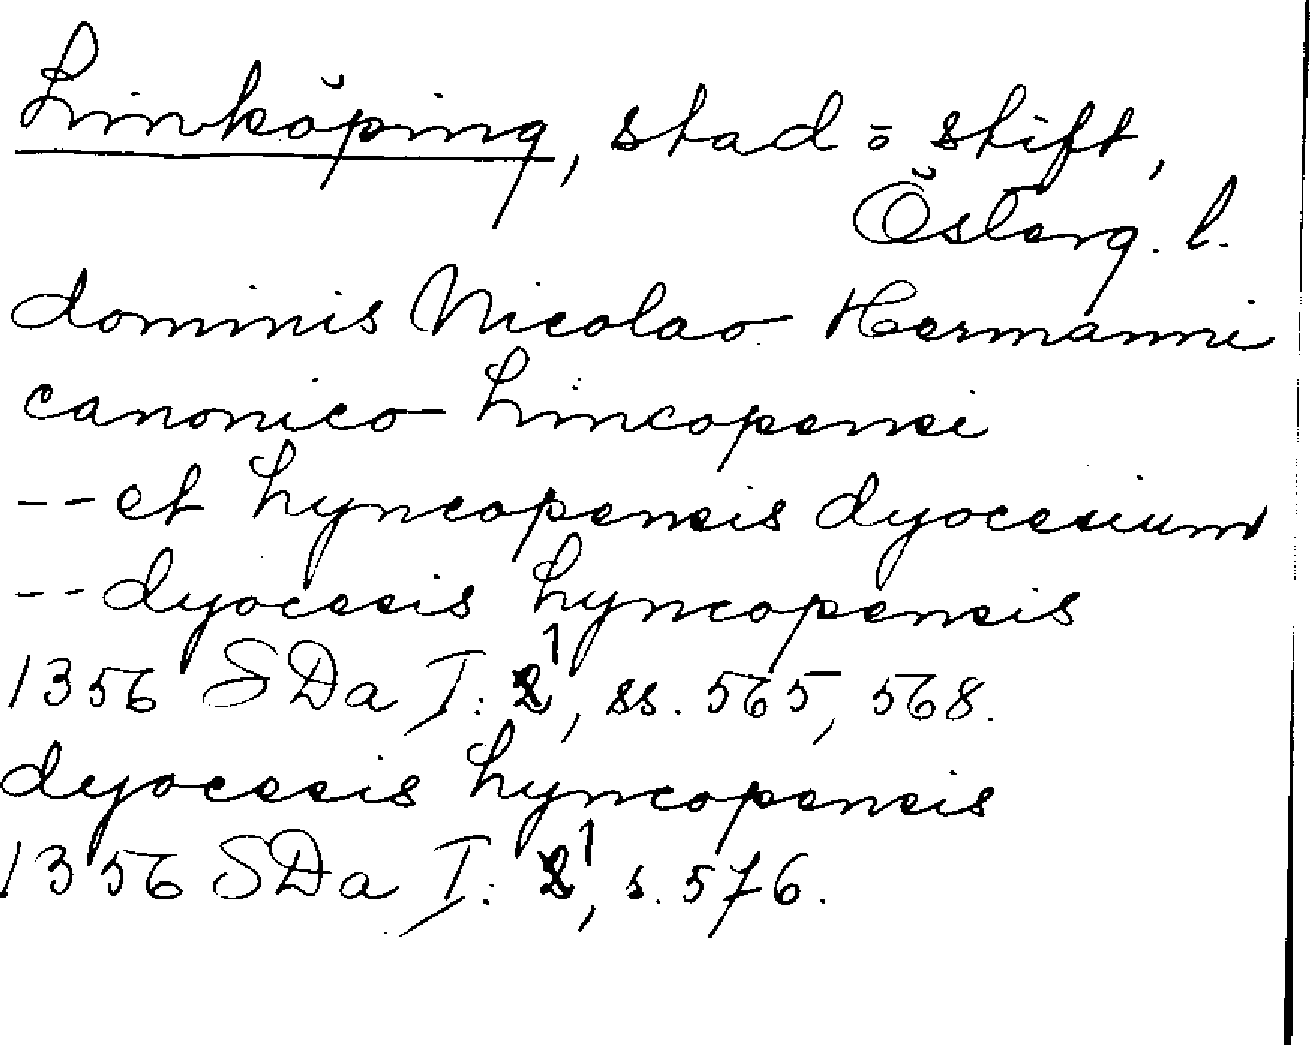 Linköping, stad o stift,
Österg. l.
dominis Nicolao Hermanni
canonico Lincopensi
-- et Lyncopensis dyocesium
-- dyocesis Lyncopensis
1356 SDa I: 1, ss. 565, 568.
dyocesis Lyncopensis
1356 SDa I: 1, s. 576.